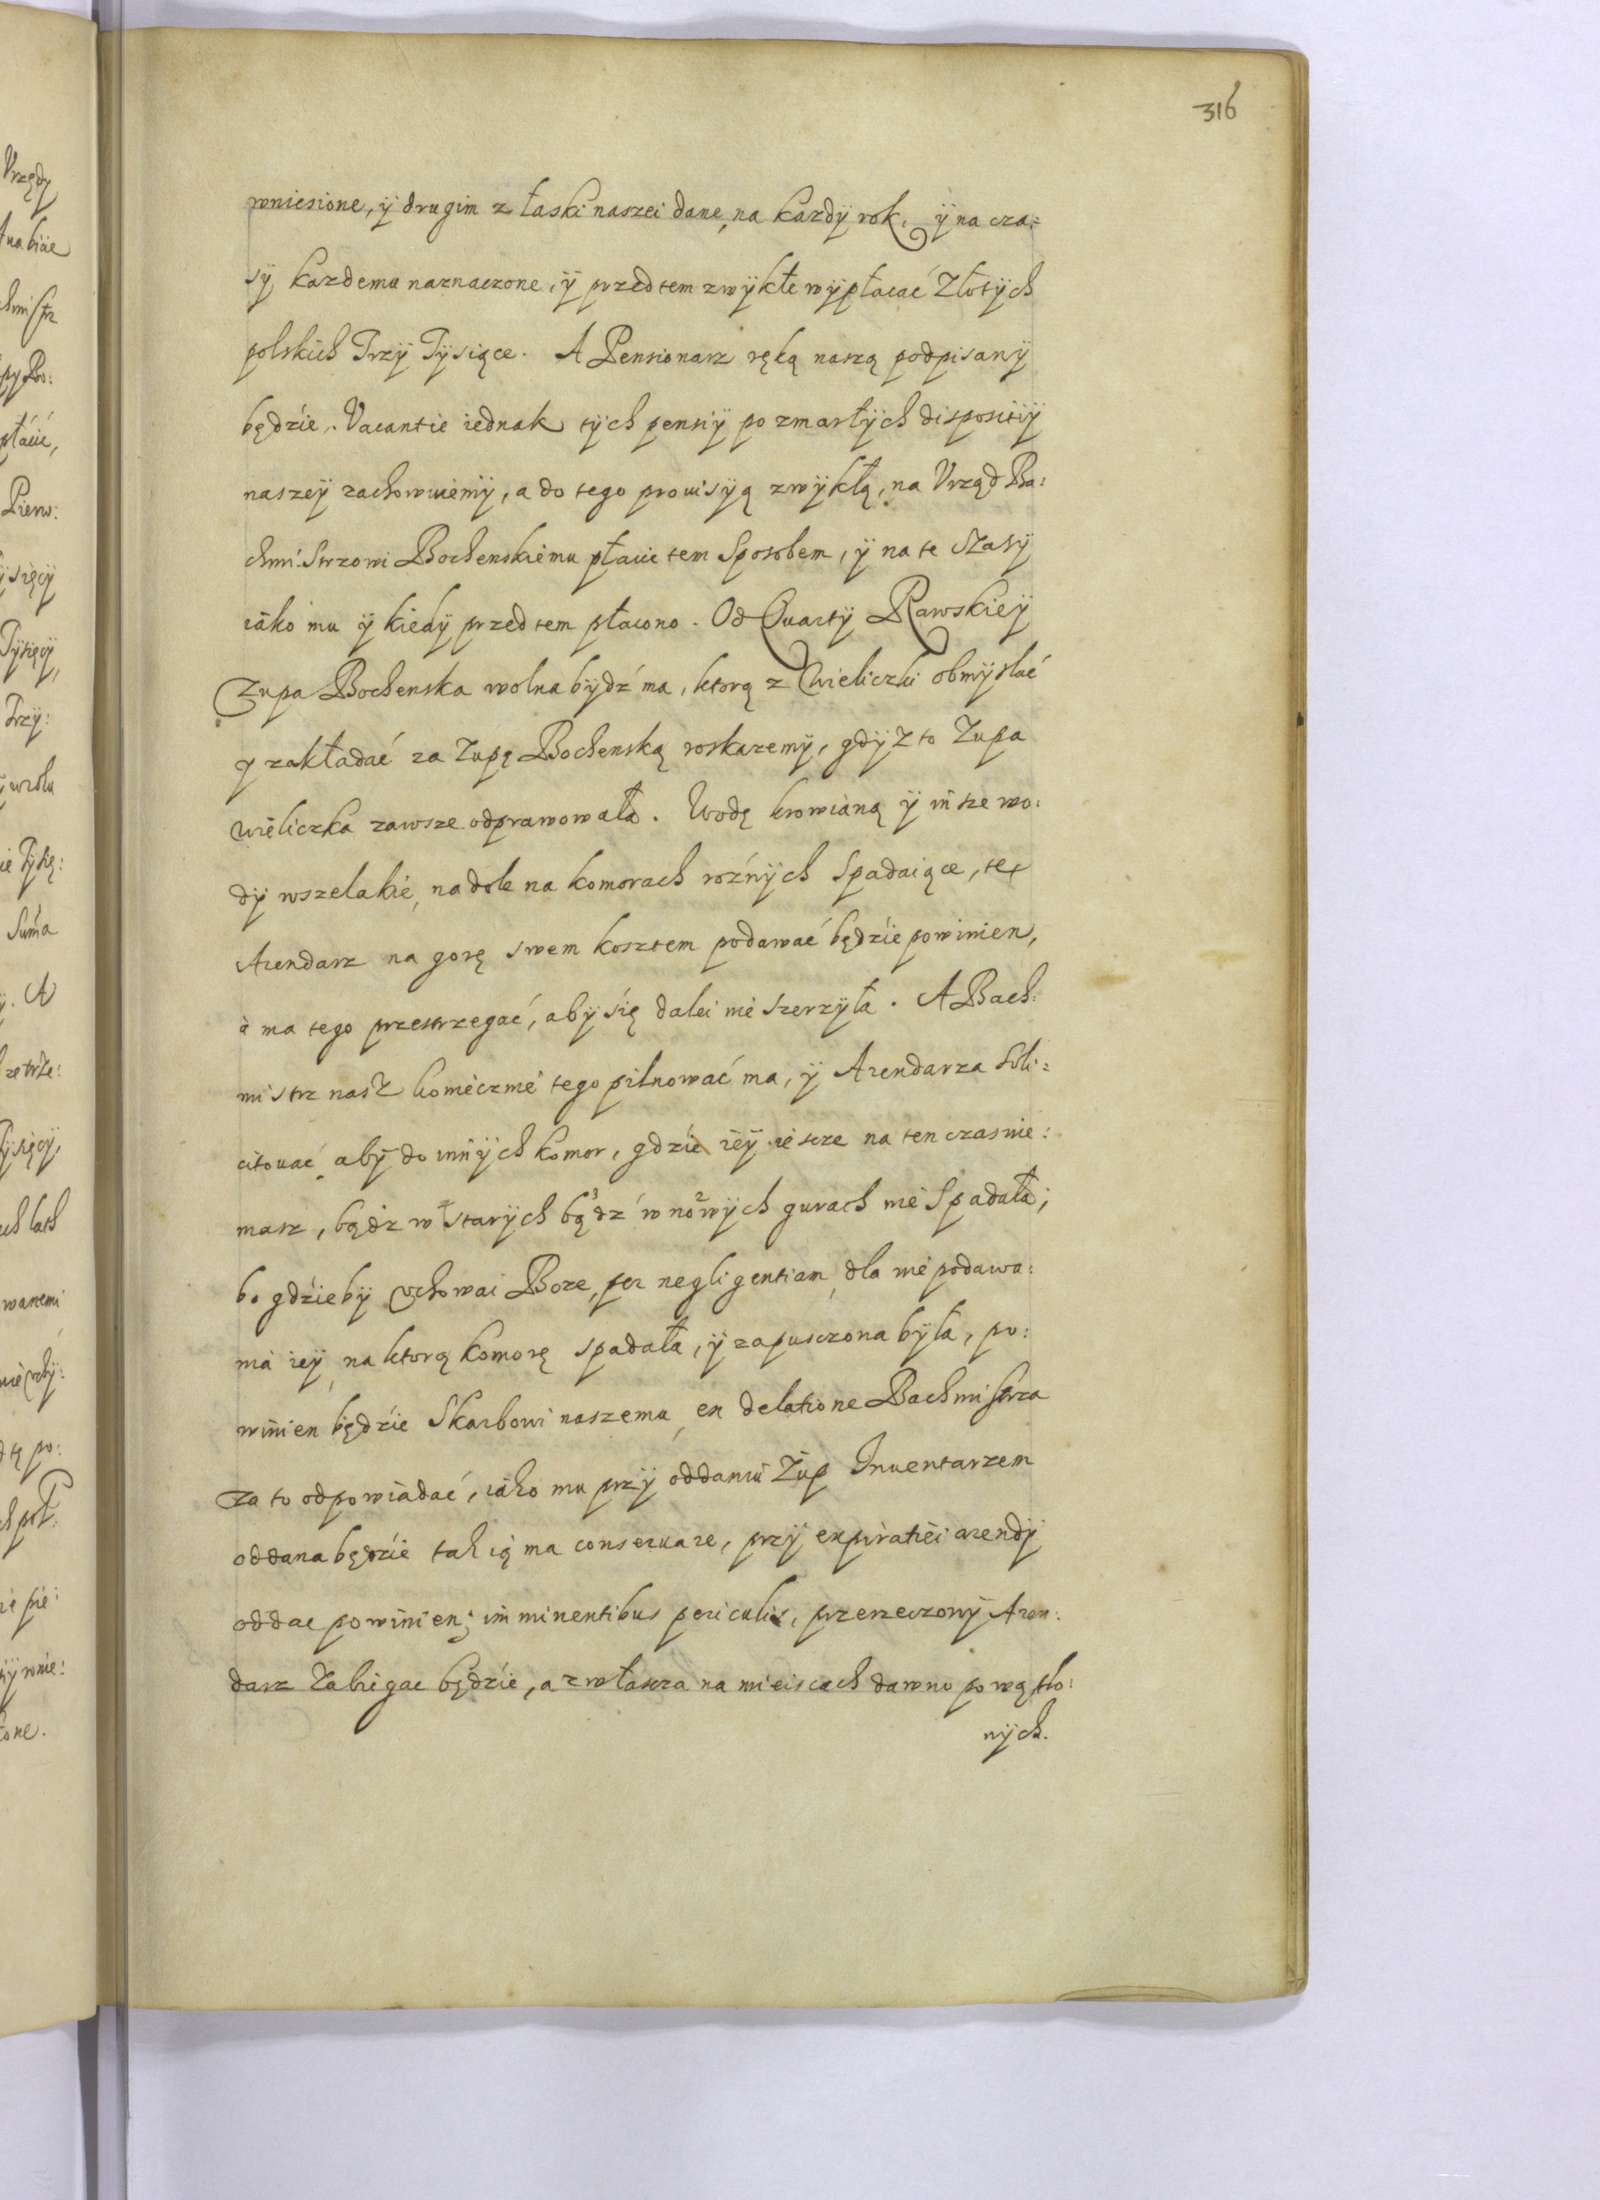 316
wniesione, ÿ drugim z łaski naszei dane, na kazdÿ rok, ÿ na cza=
sÿ kazdemu naznaczone, ÿ przedtem zwÿkłe wÿpłacać Złotÿch
polskich Trzÿ Tÿsiące. A Pensionarz ręką naszą podpisanÿ
będzie. Vacantie iednak tÿch pensiÿ po zmarłÿch dispositiÿ
naszeÿ zachowuiemÿ, a do tego prouisÿą zwÿkłą, na Vrząd Ba:
chmistrzowi Bochenskiemu płacic tem Sposobem, ÿ na te Czasÿ
iako mu ÿ kiedÿ przedtem płacono. Od Quartÿ Rawskieÿ
Zupa Bochenska wolna bÿdź ma, ktorą z Wieliczki obmÿslać
y zakładać za Zupę Bochenską roskazemÿ, gdÿz to Zupa
Wieliczka zawsze odprawowała. Wodę krowianą ÿ insze wo:
dÿ wszelakie, na dole na komorach rożnÿch Spadaiące, tex
Arendarz na gorę swem kosztem podawać będzie powinien,
à ma tego przestrzegać, abÿ się dalei nie szerzÿła. A Bach:
mistrz nasz koniecznie tego pilnować ma, ÿ Arendarza Soli:
citować abÿ do innÿch komor, gdzie ieÿ iescze na ten czas nie:
masz, bądź w starÿch bą3dź w no2wÿch gurach nie Spadała;
bo gdzie bÿ Vchowai Boze, per negligentiam, dla nie podawa:
nia ieÿ, na ktorą komorę spadała, ÿ zapusczona bÿła, po:
winien będzie Skarbowi naszemu, ex delatione Bachmistrza
za to odpowiadać, iako mu przÿ oddaniu Zup Inuentarzem
oddana będzie tak ią ma conseruare, przÿ expiratiei arendÿ
oddac powinien; imminentibus periculis, przerzeczonÿ Aren:
darz Zabiegac będzie, a zwłascza na mieiscach dawno powątlo:
nÿch.